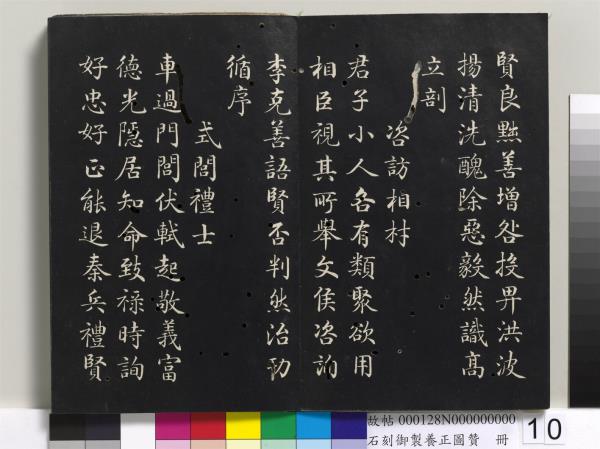 賢良點善增咎投畀洪波
揚清洗醜除惡毅然識高
立剖
咨訪相材
君子小人各有類聚欲用
相臣視其所舉文侯咨詢
李克善語賢否判然治功
循序
式閭禮士
車過門閭伏軾起敬義富
德光隱居知命致祿時詢
好忠好正能退秦兵禮賢
故帖 000128N000000000
石刻御製養正圖贊 冊
10